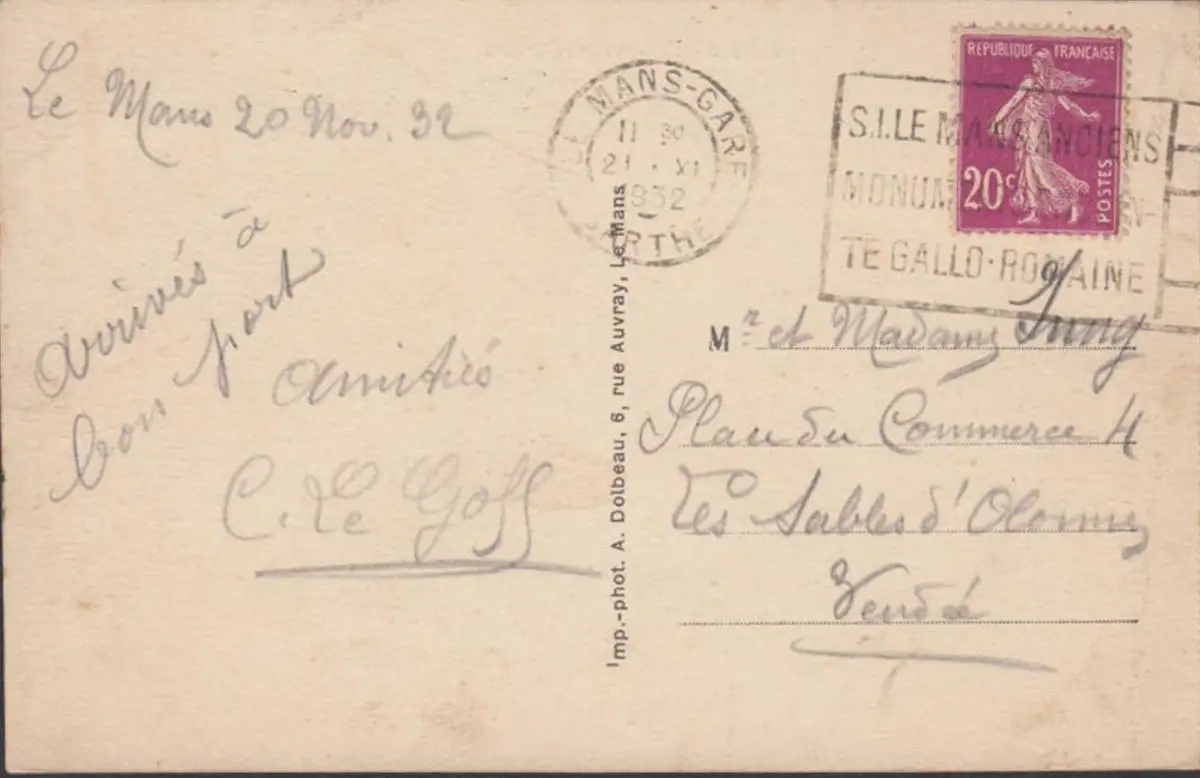 Le Mans 20 Nov. 32
arrivés à
bon port
Amitiés
C. Le Goff
LE MANS-GARE
11 30
21 · XI
1932
SARTHE
S.I. LE MANS ANCIENS
MONUM
TE GALLO-ROMAINE
REPUBLIQUE FRANÇAISE
20c
POSTES
Imp.-phot. A. Dolbeau, 6, rue Auvray, Le Mans
Mr et Madame Jung
Place du Commerce 4
Les Sables d'Olonne
Vendée